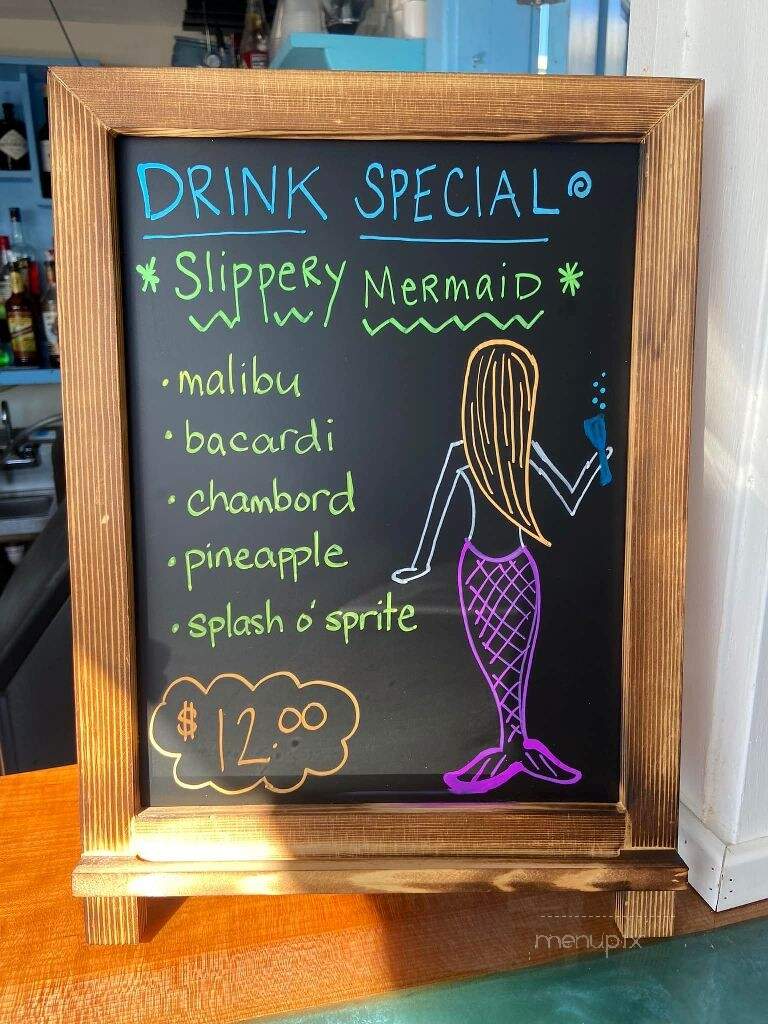 DRINK SPECIAL
* Slippery Mermaid *
· malibu
· bacardi
· chambord
· pineapple
· splash o' sprite
$12.00
menupix